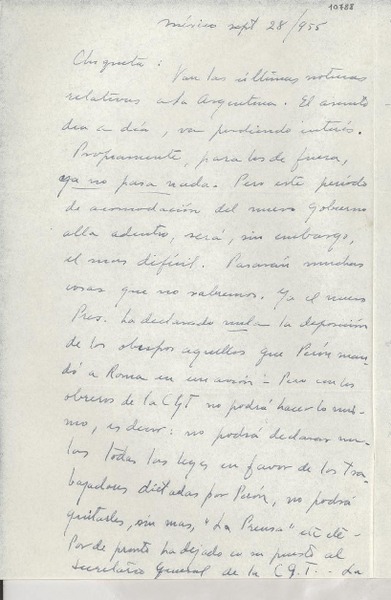 10788
México sept 28/955
Chiquita: Van las últimas noticias
relativas a la Argentina. El asunto
dia a día, va perdiendo interés.
Propiamente, para los de fuera,
ya no pasa nada. Pero este período
de acomodación del nuevo gobierno
alla adentro, será, sin embargo,
el mas difícil. Pasarán muchas
cosas que no sabremos. Ya el nuevo
Pres. ha declarado nula la deposición
de los obispos aquellos que Perón man
dó a Roma en un avión - Pero con los
obreros de la CGT no podrá hacer lo mis
mo, es decir: no podrá declarar nu-
las todas las leyes en favor de los tra
bajadores dictadas por Perón, no podrá
quitarles, sin mas, "La Prensa" etc etc -
Por de pronto ha dejado en su puesto al
Secretario General de la C.G.T. - La